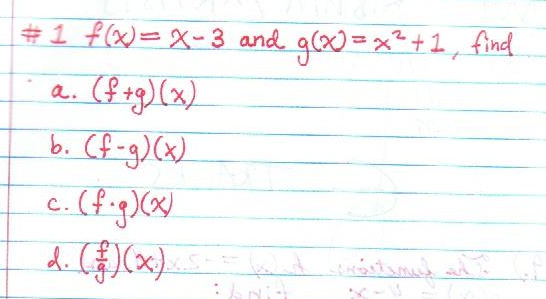 # 1 f(x) = x - 3 and g(x) = x² + 1, find
a. (f + g)(x)
b. (f - g)(x)
c. (f · g)(x)
d. (f/g)(x)